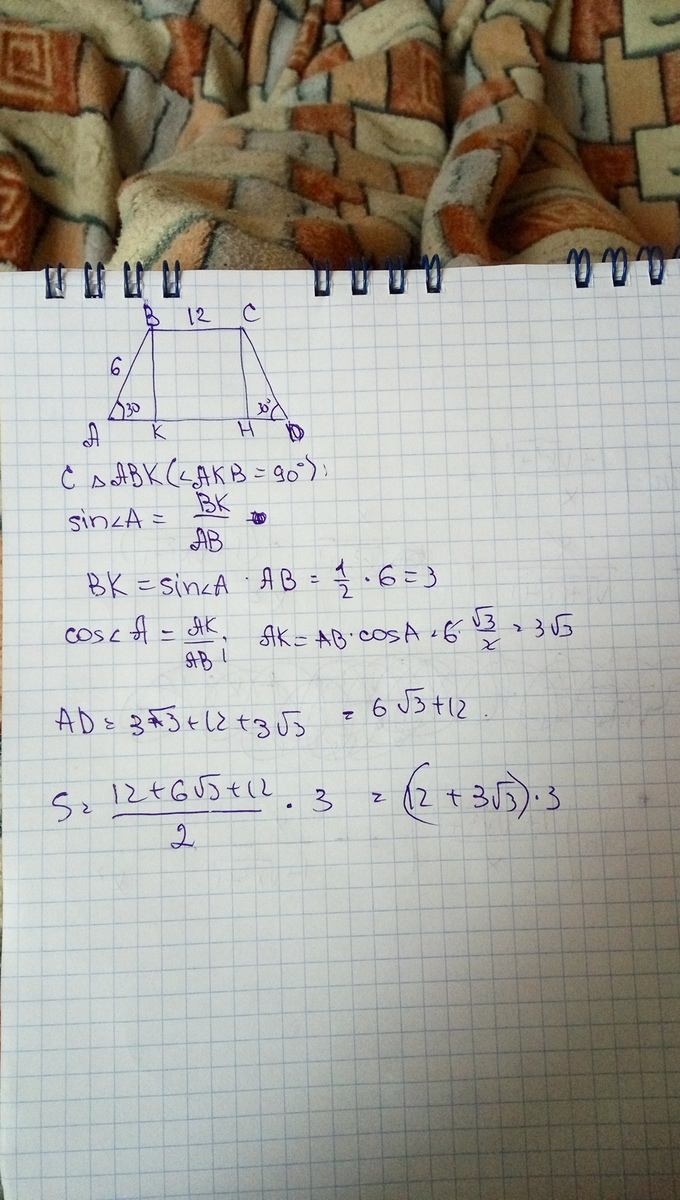 B 12 C
6
30 30°
A K H D
С △ABK(∠AKB = 90°):
sin∠A = BK/AB
BK = sin∠A · AB = 1/2 · 6 = 3
cos∠A = AK/AB; AK = AB · cosA = 6 · √3/2 = 3√3
AD = 3√3 + 12 + 3√3 = 6√3 + 12.
S = (12 + 6√3 + 12)/2 · 3 = (12 + 3√3) · 3